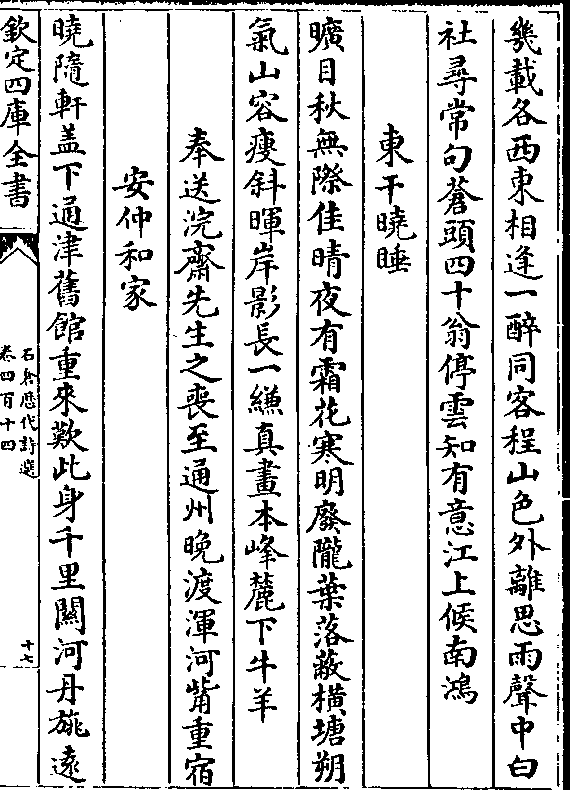 幾載各西東相逢一醉同客程山色外離思雨聲中白
社尋常句蒼頭四十翁停雲知有意江上候南鴻
東干曉睡
曠目秋無際佳晴夜有霜花寒明廢隴葉落蔽橫塘朔
氣山容瘦斜暉岸影長一縑真畫本峰麓下牛羊
奉送浣齋先生之喪至通州晚渡渾河觜重宿
安仲和家
曉隨軒盖下通津舊館重來歎此身千里關河丹旐遠
欽定四庫全書
石倉歴代詩選
卷四百十四
十七